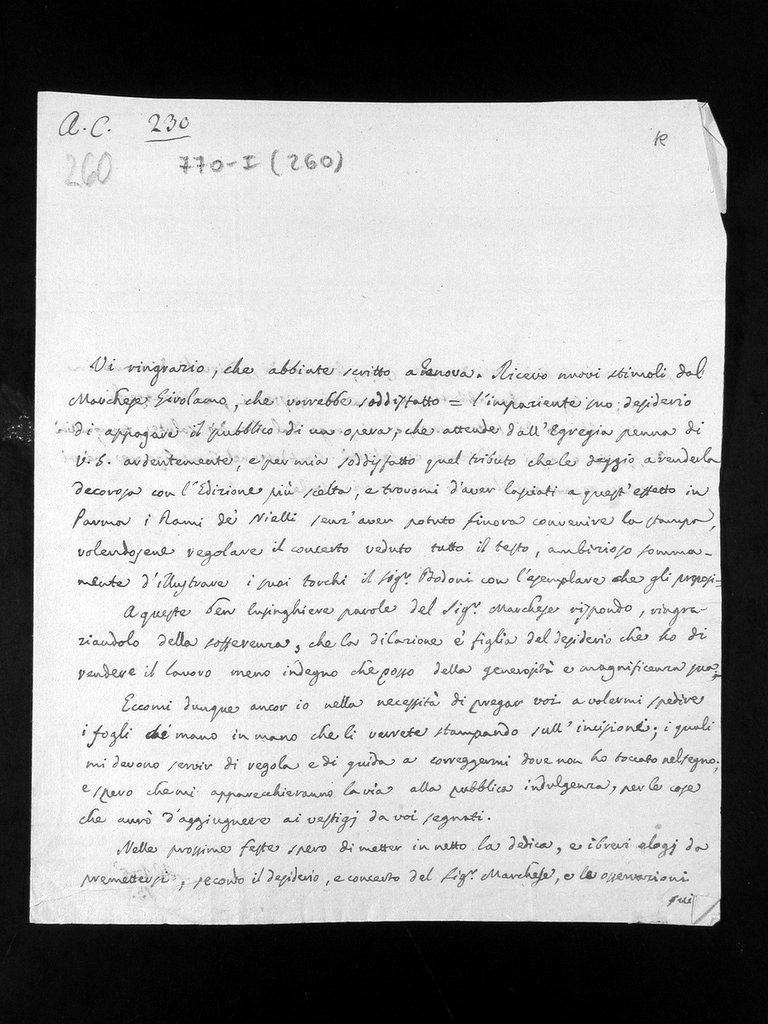 A. C. 230
260
770-I (260)
Vi ringrazio, che abbiate scritto a Genova. Ricevo nuovi stimoli dal
Marchese Girolamo, che vorrebbe soddisfatto = l'impaziente suo desiderio
di appagare il pubblico di un opera, che attende dall'Egregia penna di
V. S. ardentemente, e per mia soddisfatto quel tributo che le deggio a renderla
decorosa con l'Edizione più scelta, e trovomi d'aver lasciati a quest'effetto in
Parma i Rami de' Nielli senz'aver potuto finora convenire la stampa,
volendosene regolare il concerto veduto tutto il testo, ambizioso somma-
mente d'illustrare i suoi torchi il Sigr. Bodoni con l'esemplare che gli proposi =
A queste ben lusinghiere parole del Sigr. Marchese rispondo, ringra-
ziandolo della sofferenza, che la dilazione è figlia del desiderio che ho di
rendere il lavoro meno indegno che posso della generosità e magnificenza sua.
Eccomi dunque ancor io nella necessità di pregar voi a volermi spedire
i fogli di mano in mano che li verrete stampando sull'incisione; i quali
mi devono servir di regola e di guida a correggermi dove non ho toccato nel segno;
e spero che mi apparecchieranno la via alla pubblica indulgenza, per le cose
che avrò d'aggiugnere ai vestigj da voi segnati.
Nelle prossime feste spero di metter in netto la dedica, e i brevi elogj da
premettersi, secondo il desiderio, e concerto del Sigr. Marchese, e le osservazioni